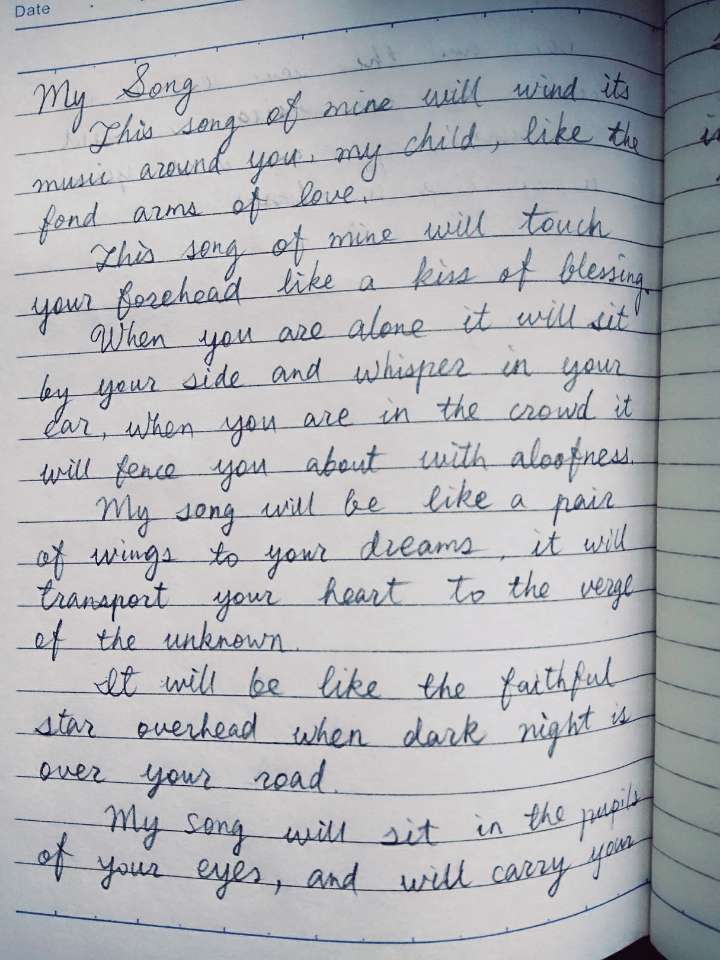 Date
My Song
This song of mine will wind its
music around you, my child, like the
fond arms of love.
This song of mine will touch
your forehead like a kiss of blessing.
When you are alone it will sit
by your side and whisper in your
ear, when you are in the crowd it
will fence you about with aloofness.
My song will be like a pair
of wings to your dreams, it will
transport your heart to the verge
of the unknown.
It will be like the faithful
star overhead when dark night is
over your road.
My song will sit in the pupils
of your eyes, and will carry your